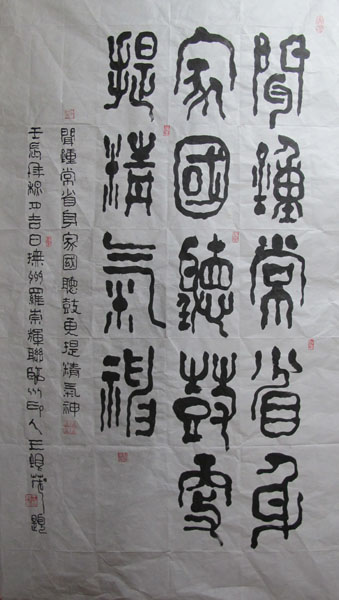 聞鐘常省身
家國聽鼓更
提精氣神
聞鐘常省身家國聽鼓更提精氣神
壬辰年吉日撫州羅崇輝聯臨川印人王茂題